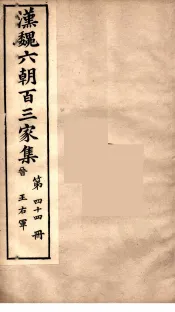 漢魏六朝百三家集
晉
第四十四冊
王右軍